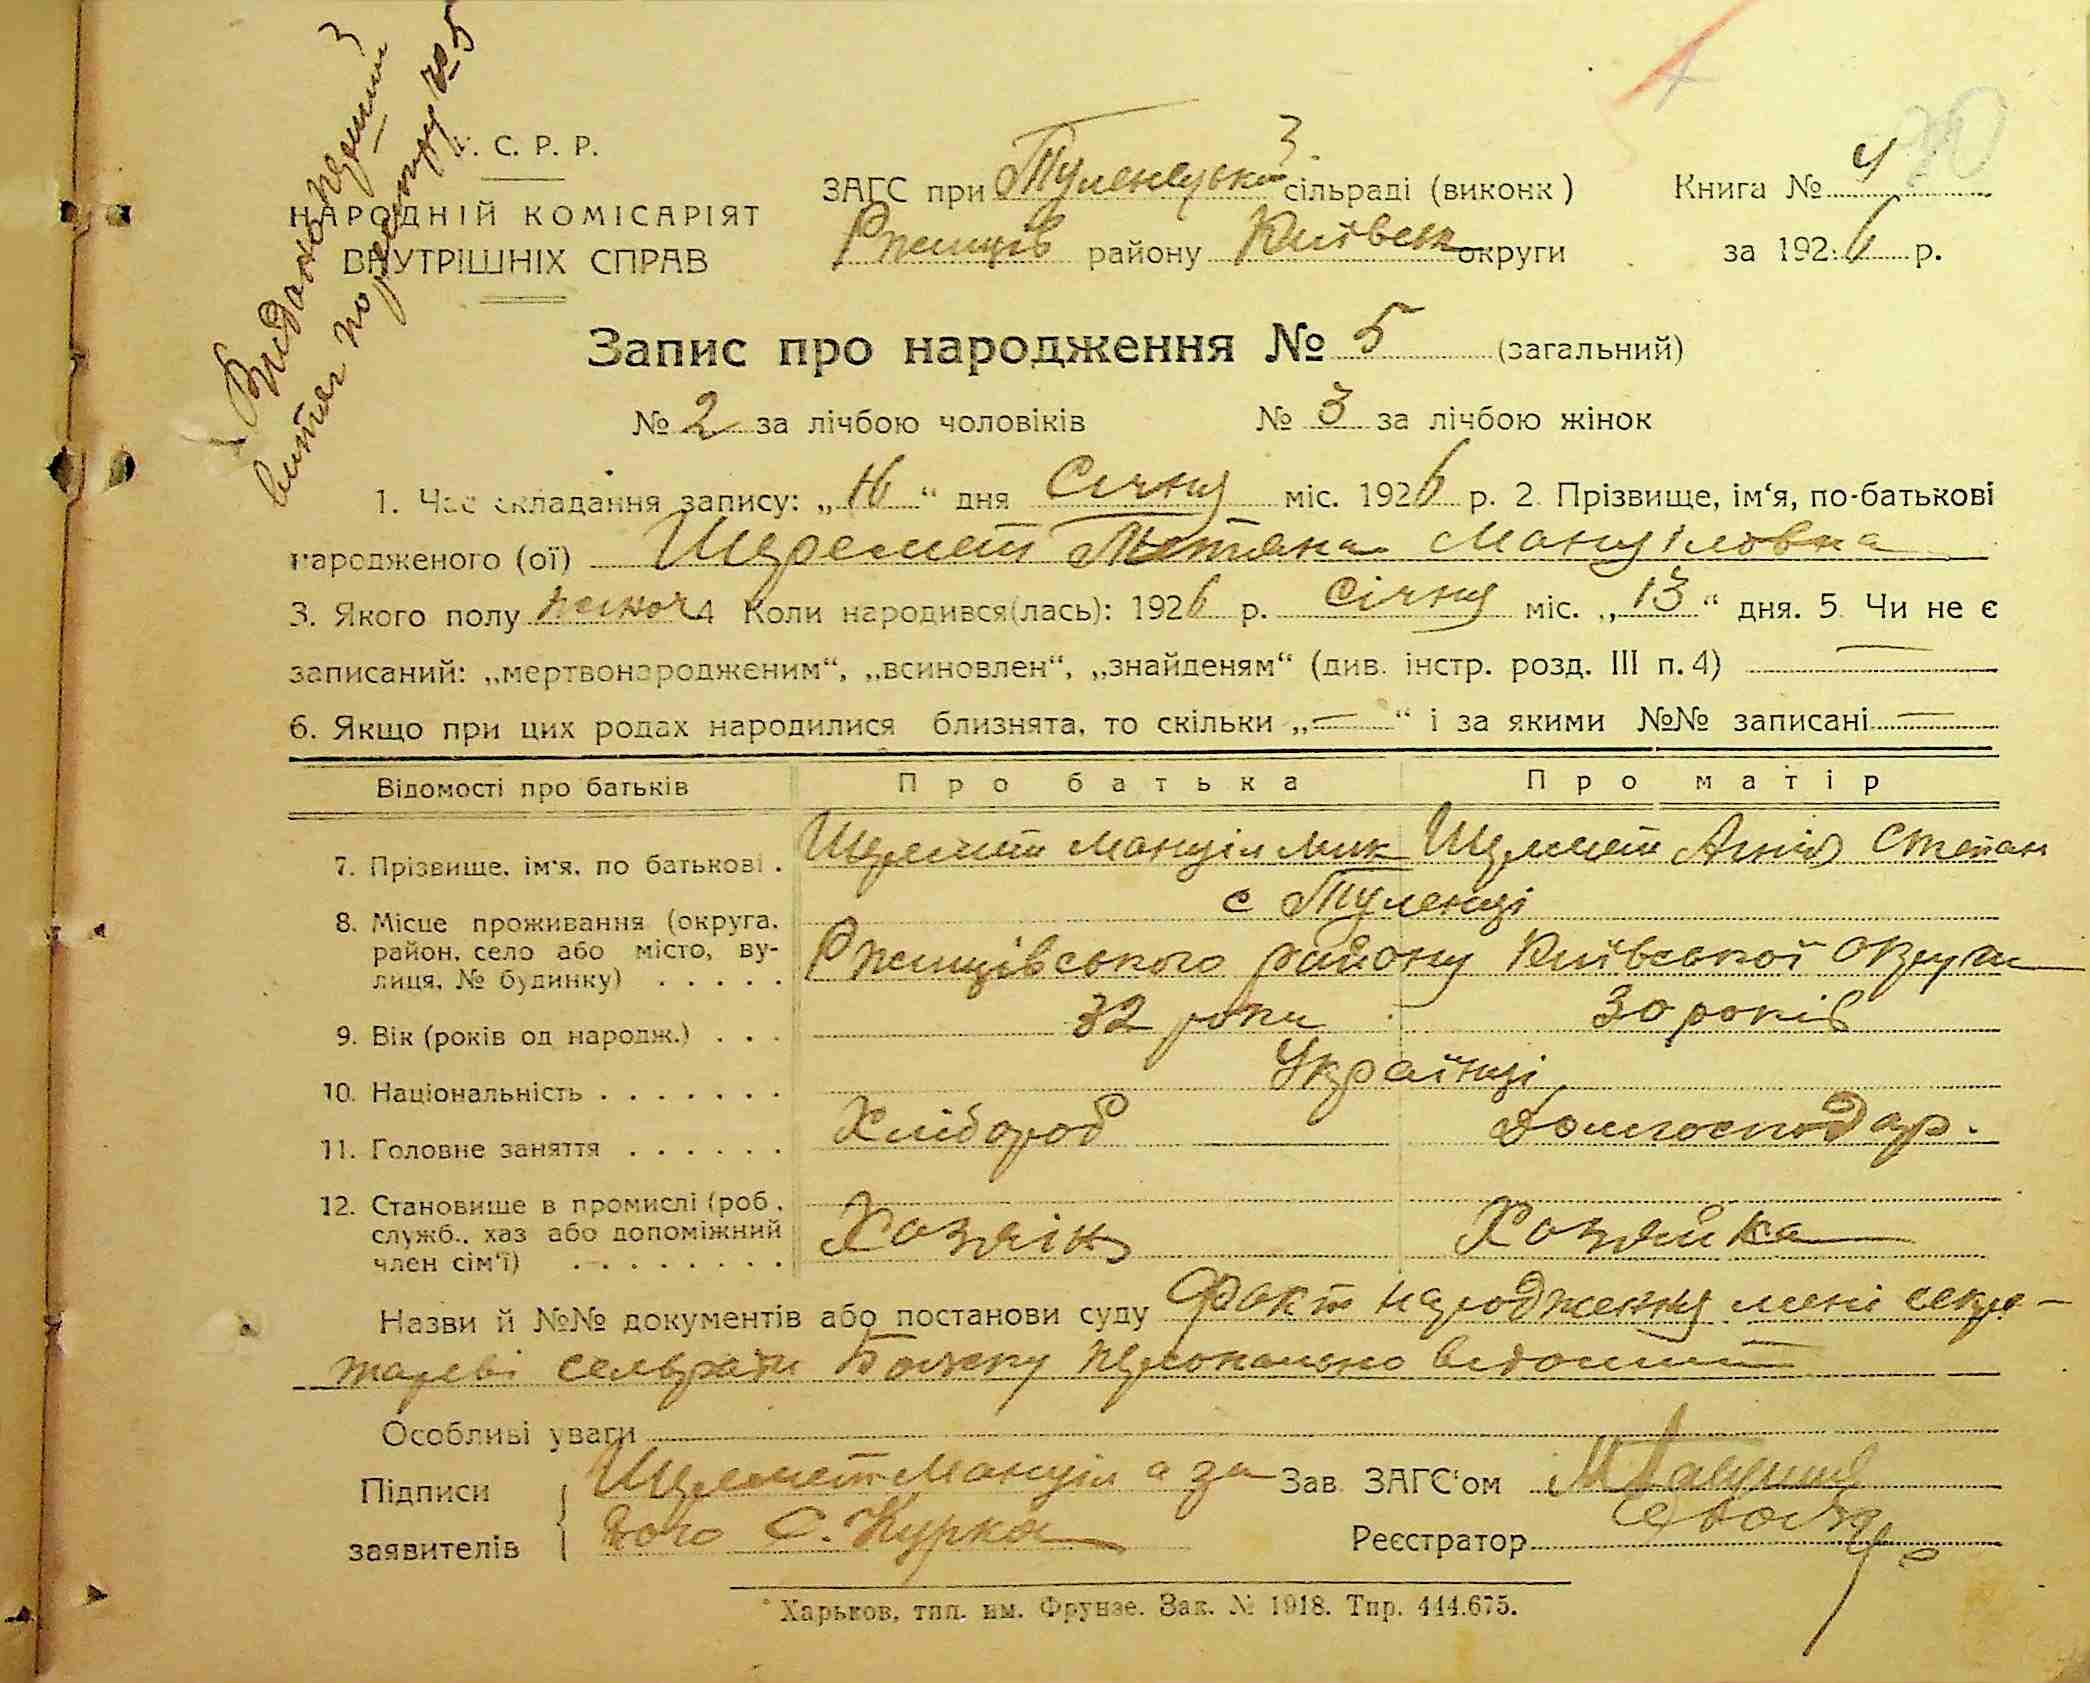 Видано перший
витяг по реєстру № 5
У. С. Р. Р.
НАРОДНІЙ КОМІСАРІЯТ
ВНУТРІШНІХ СПРАВ
ЗАГС при Тулинській сільраді (виконк)
Ржищів району Київськ округи
Книга № 4
за 1926 р.
Запис про народження № 5 (загальний)
№ 2 за лічбою чоловіків № 3 за лічбою жінок
1. Час складання запису: „16“ дня Січня міс. 1926 р. 2. Прізвище, ім‘я, по-батькові
народженого (ої) Шеремет Тетяна Мануіловна
3. Якого полу жіноч 4 Коли народився(лась): 1926 р. Січня міс. „13“ дня. 5. Чи не є
записаний: „мертвонародженим“, „всиновлен“, „знайденям“ (див. інстр. розд. III п. 4) —
6. Якщо при цих родах народилися близнята, то скільки „—“ і за якими №№ записані —
Відомості про батьків Про батька Про матір
7. Прізвище, ім‘я, по батькові . Шеремет Мануіл Мик Шеремет Ания Степан
8. Місце проживання (округа, с Туленці
район, село або місто, ву- Ржищівського району Київської округи
лиця, № будинку) . . . . .
9. Вік (років од народж.) . . . 32 роки 30 років
10. Національність . . . . . . . Українці
11. Головне заняття . . . . . . Хлібороб Домгосподар.
12. Становище в промислі (роб.,
служб., хаз або допоміжний Хозяїн Хозяйка
член сім‘ї) . . . . . . . .
Назви й №№ документів або постанови суду Факт народження мені секре-
тареві сельради персонально відомий
Особливі уваги
Підписи Шеремет Мануіл а за Зав. ЗАГС‘ом
заявителів його С. Курка Реєстратор
Харьков, тип. им. Фрунзе. Зак. № 1918. Тир. 444.675.